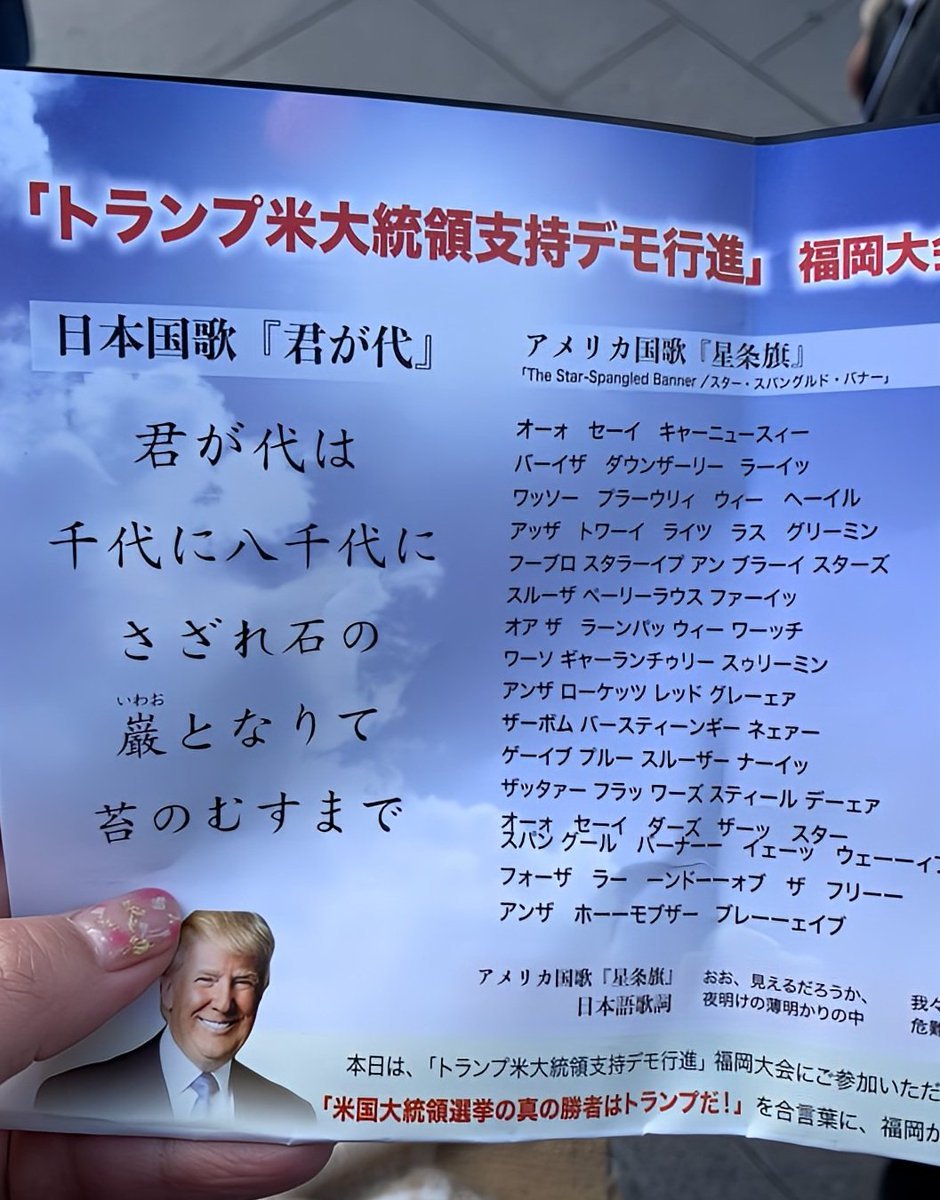 「トランプ米大統領支持デモ行進」 福岡大会
日本国歌『君が代』
君が代は
千代に八千代に
さざれ石の
いわお
巌となりて
苔のむすまで
アメリカ国歌『星条旗』
「The Star-Spangled Banner /スター・スパングルド・バナー」
オーォ セーイ キャーニュースィー
バーイザ ダウンザーリー ラーイッ
ワッソー プラーウリィ ウィー ヘーイル
アッザ トワーイ ライツ ラス グリーミン
フーブロ スタラーイプ アン ブラーイ スターズ
スルーザ ペーリーラウス ファーイッ
オア ザ ラーンパッ ウィー ワーッチ
ワーソ ギャーランチゥリー スゥリーミン
アンザ ローケッツ レッド グレーェア
ザーボム バースティーンギー ネェアー
ゲーイブ プルー スルーザー ナーイッ
ザッタァー フラッ ワーズ スティール デーェア
オーォ セーイ ダーズ ザーッ スター
スパン グール バーナーー イェーツ ウェーーィ
フォーザ ラー ーンドーーオブ ザ フリーー
アンザ ホーーモブザー ブレーーェイブ
アメリカ国歌『星条旗』
日本語歌詞
おお、見えるだろうか、
夜明けの薄明かりの中
我々
危難
本日は、「トランプ米大統領支持デモ行進」福岡大会にご参加いただ
「米国大統領選挙の真の勝者はトランプだ！」を合言葉に、福岡か